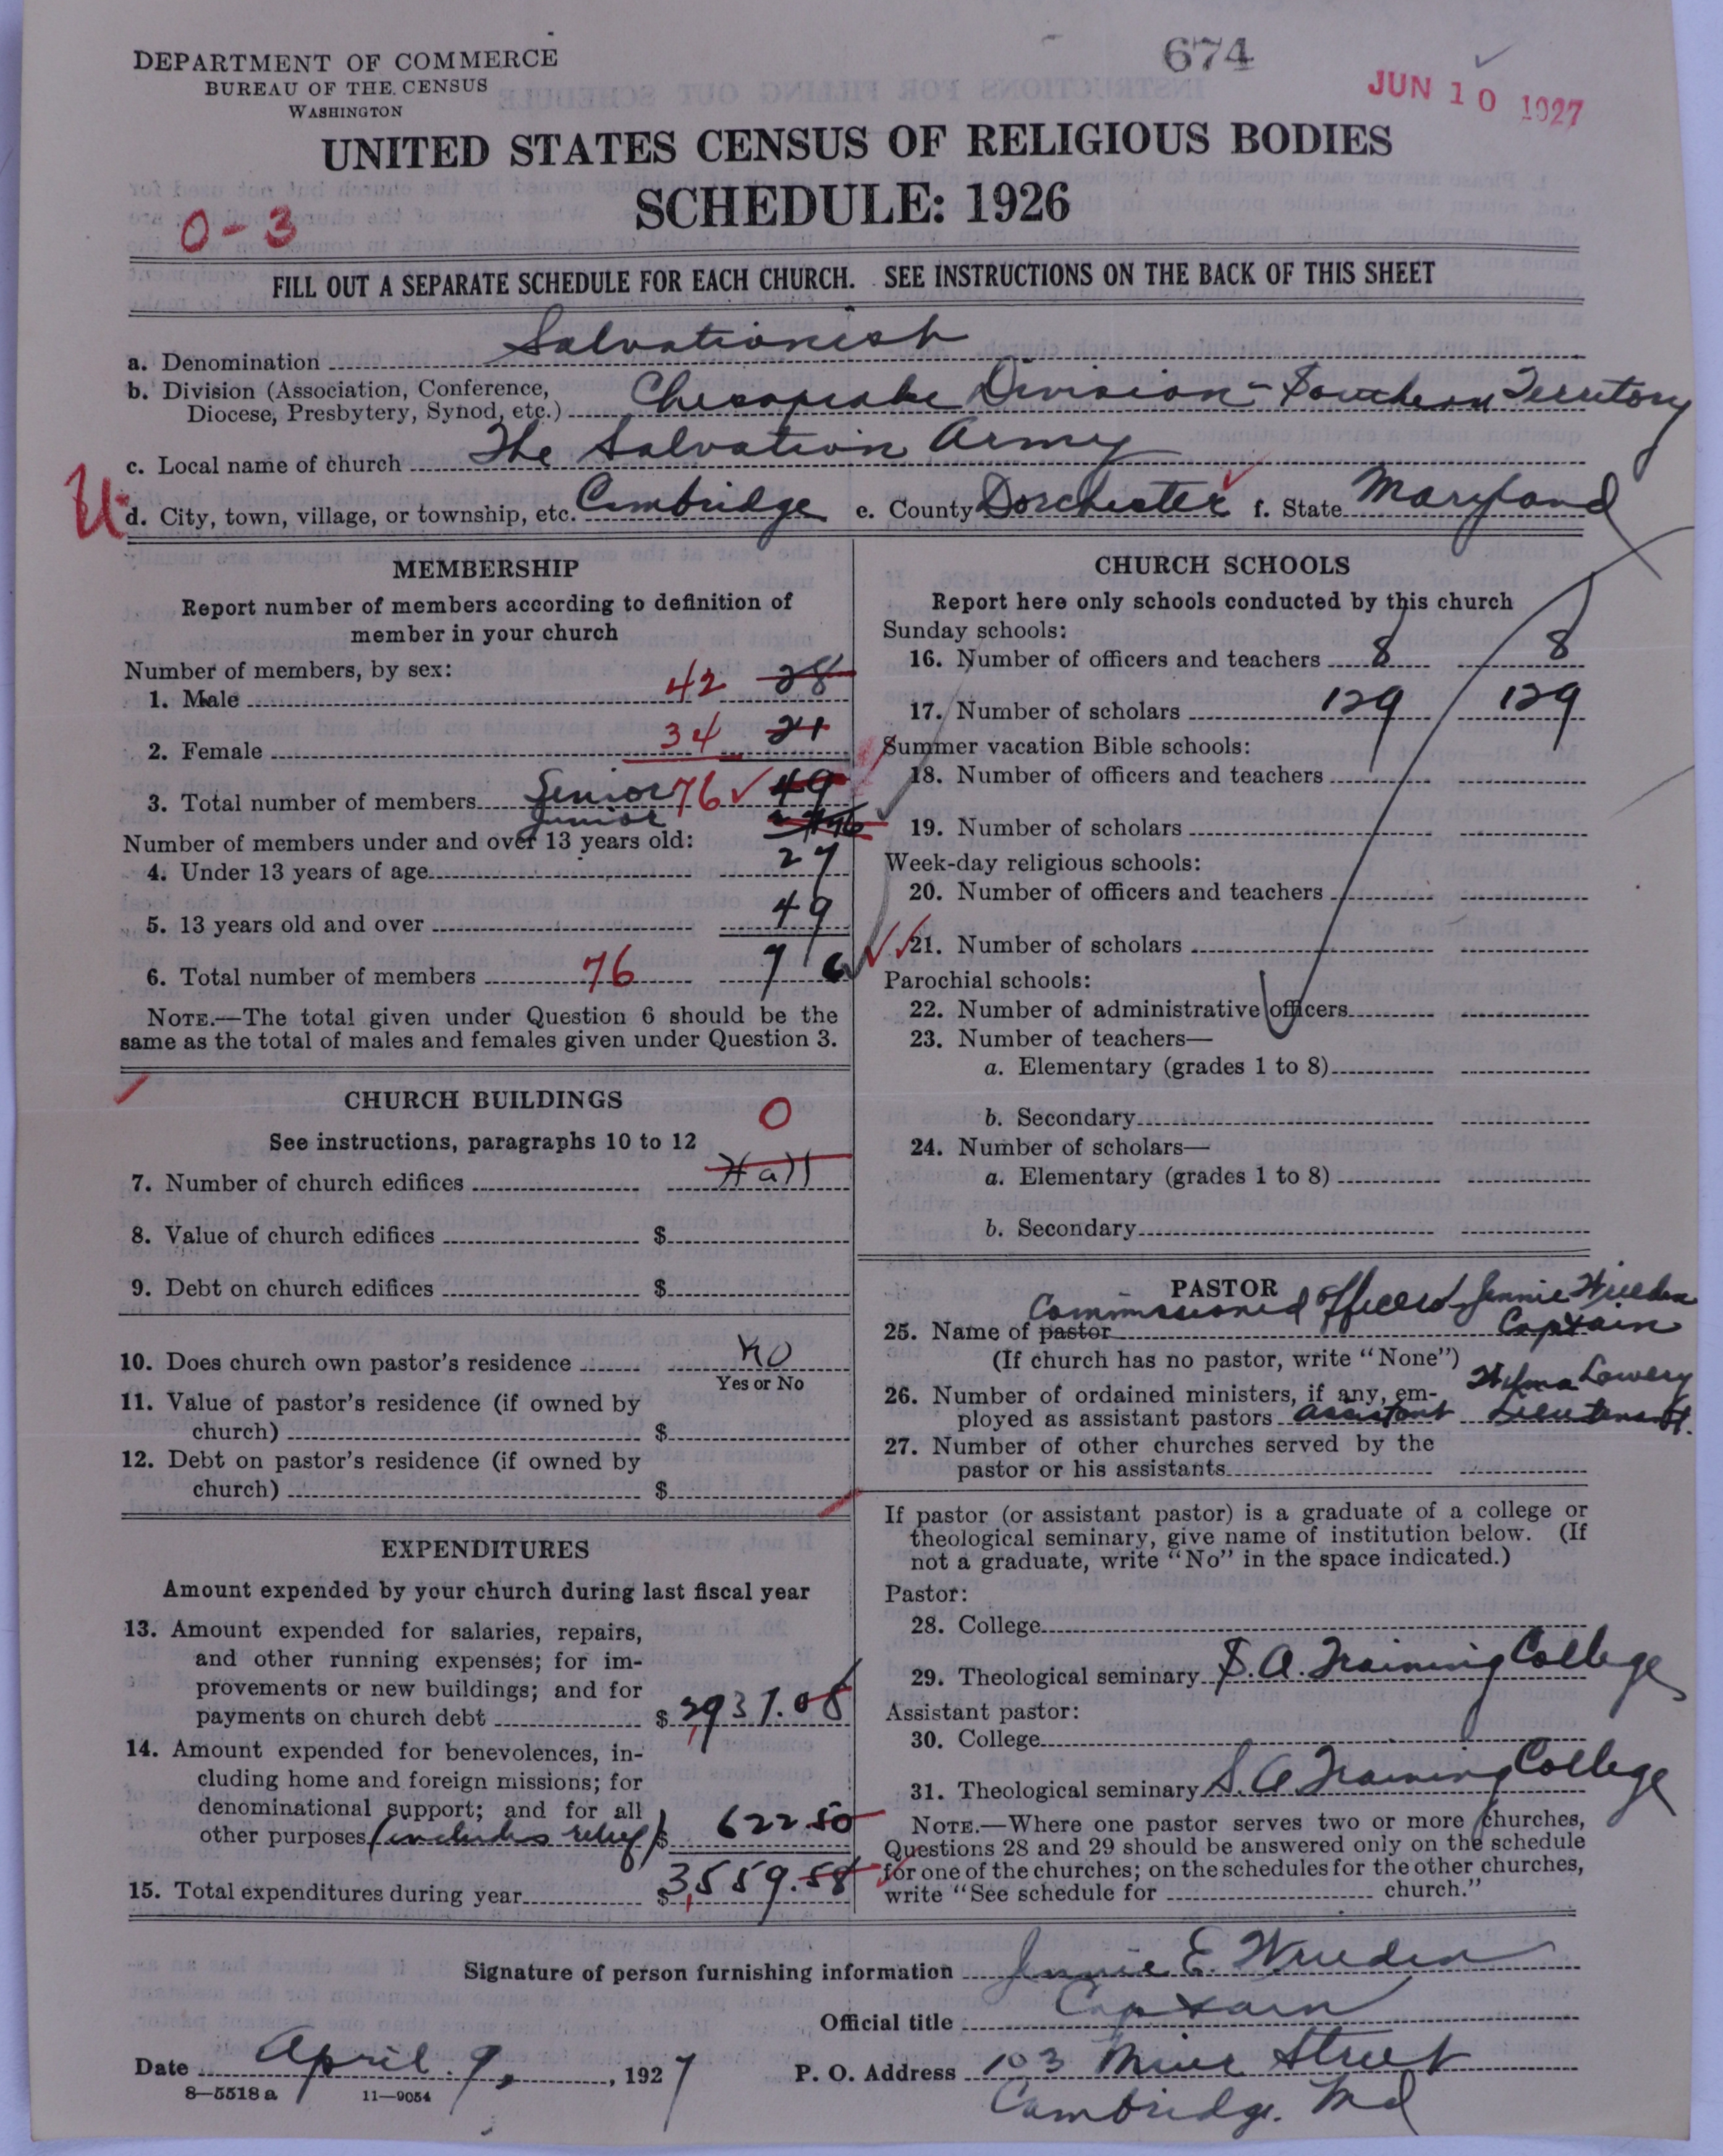 DEPARTMENT OF COMMERCE
BUREAU OF THE CENSUS
WASHINGTON
674
JUN 10 1927
UNITED STATES CENSUS OF RELIGIOUS BODIES
SCHEDULE: 1926
0-3
FILL OUT A SEPARATE SCHEDULE FOR EACH CHURCH. SEE INSTRUCTIONS ON THE BACK OF THIS SHEET
a. Denomination Salvationish
b. Division (Association, Conference,
Diocese, Presbytery, Synod, etc.) Chesapeake Division - Southern Territory
c. Local name of church The Salvation Army
U
d. City, town, village, or township, etc. Cambridge e. County Dorchester f. State Maryland
MEMBERSHIP
Report number of members according to definition of
member in your church
Number of members, by sex:
1. Male 42 28
2. Female 34 21
3. Total number of members Senior 76 49
Junior
Number of members under and over 13 years old:
4. Under 13 years of age 27
5. 13 years old and over 49
6. Total number of members 76 76
NOTE.—The total given under Question 6 should be the
same as the total of males and females given under Question 3.
CHURCH BUILDINGS
See instructions, paragraphs 10 to 12
0
7. Number of church edifices Hall
8. Value of church edifices $
9. Debt on church edifices $
10. Does church own pastor's residence No
Yes or No
11. Value of pastor's residence (if owned by
church) $
12. Debt on pastor's residence (if owned by
church) $
EXPENDITURES
Amount expended by your church during last fiscal year
13. Amount expended for salaries, repairs,
and other running expenses; for im-
provements or new buildings; and for
payments on church debt $ 2937.08
14. Amount expended for benevolences, in-
cluding home and foreign missions; for
denominational support; and for all
other purposes (includes relief) $ 622.50
15. Total expenditures during year $ 3,559.58
CHURCH SCHOOLS
Report here only schools conducted by this church
Sunday schools:
16. Number of officers and teachers 8 8
17. Number of scholars 129 129
Summer vacation Bible schools:
18. Number of officers and teachers
19. Number of scholars
Week-day religious schools:
20. Number of officers and teachers
21. Number of scholars
Parochial schools:
22. Number of administrative officers
23. Number of teachers—
a. Elementary (grades 1 to 8)
b. Secondary
24. Number of scholars—
a. Elementary (grades 1 to 8)
b. Secondary
PASTOR
Commissioned Officers Jennie Wrieden
25. Name of pastor Captain
(If church has no pastor, write "None")
Wilma Lowery
26. Number of ordained ministers, if any, em-
ployed as assistant pastors assistant Lieutenant.
27. Number of other churches served by the
pastor or his assistants
If pastor (or assistant pastor) is a graduate of a college or
theological seminary, give name of institution below. (If
not a graduate, write "No" in the space indicated.)
Pastor:
28. College
29. Theological seminary S.A. Training College
Assistant pastor:
30. College
31. Theological seminary S.A. Training College
NOTE.—Where one pastor serves two or more churches,
Questions 28 and 29 should be answered only on the schedule
for one of the churches; on the schedules for the other churches,
write "See schedule for church."
Signature of person furnishing information Jennie E. Wrieden
Official title Captain
Date April 9, 1927 P. O. Address 103 Muir Street
8—5518 a 11—9054
Cambridge. Md